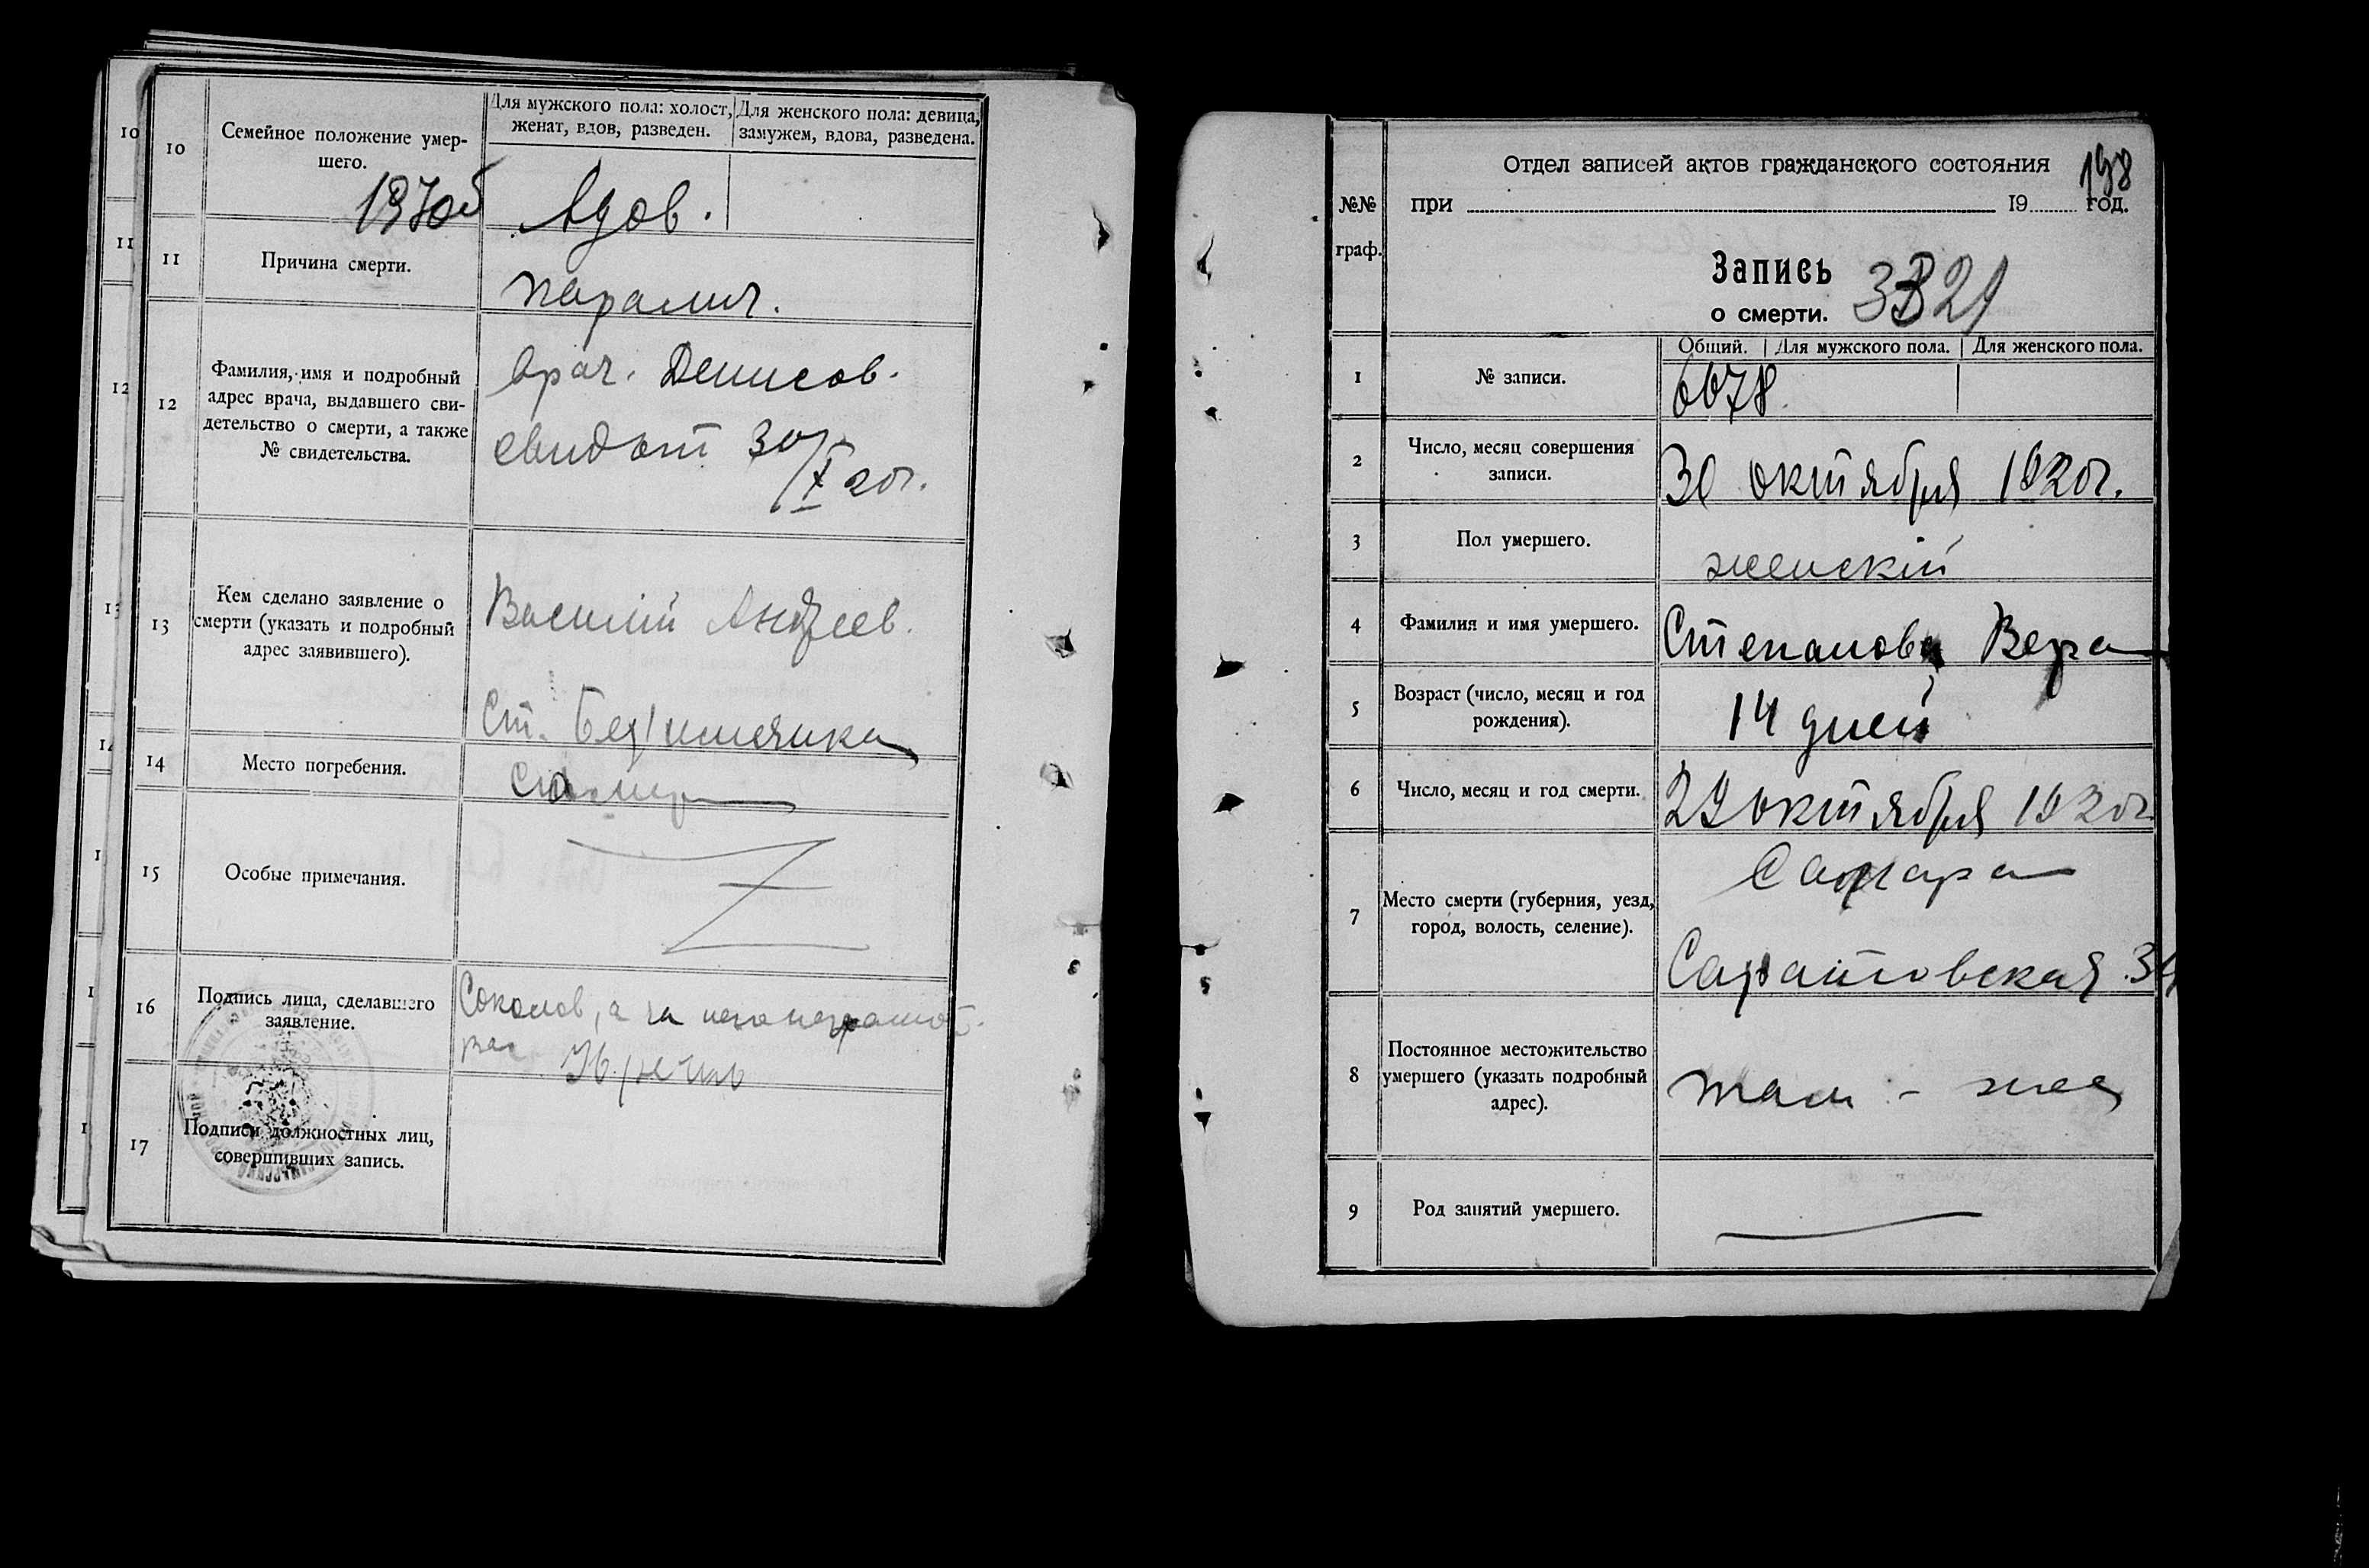 10
Семейное положение умер-
шего.
Для мужского пола: холост,
женат, вдов, разведен.
Для женского пола: девица,
замужем, вдова, разведена.
Вдов.
11
Причина смерти.
паралич.
12
Фамилия, имя и подробный
адрес врача, выдавшего сви-
детельство о смерти, а также
№ свидетельства.
врач. Денисов.
свидет 30/X 20г.
13
Кем сделано заявление о
смерти (указать и подробный
адрес заявившего).
Василий Андреев.
Ст. Безимянка
14
Место погребения.
15
Особые примечания.
16
Подпись лица, сделавшего
заявление.
Соколов, а за него неграмот.
17
Подписи должностных лиц,
совершивших запись.
198
Отдел записей актов гражданского состояния
при 19 год.
№№
граф.
Запись
о смерти.
3321
Общий. Для мужского пола. Для женского пола.
1
№ записи.
6678.
2
Число, месяц совершения
записи.
30 октября 1920г.
3
Пол умершего.
женскiй
4
Фамилия и имя умершего.
Степанова Вера
5
Возраст (число, месяц и год
рождения).
14 дней
6
Число, месяц и год смерти.
29 октября 1920г
7
Место смерти (губерния, уезд,
город, волость, селение).
Самара
Саратовская 34
8
Постоянное местожительство
умершего (указать подробный
адрес).
там - же
9
Род занятий умершего.